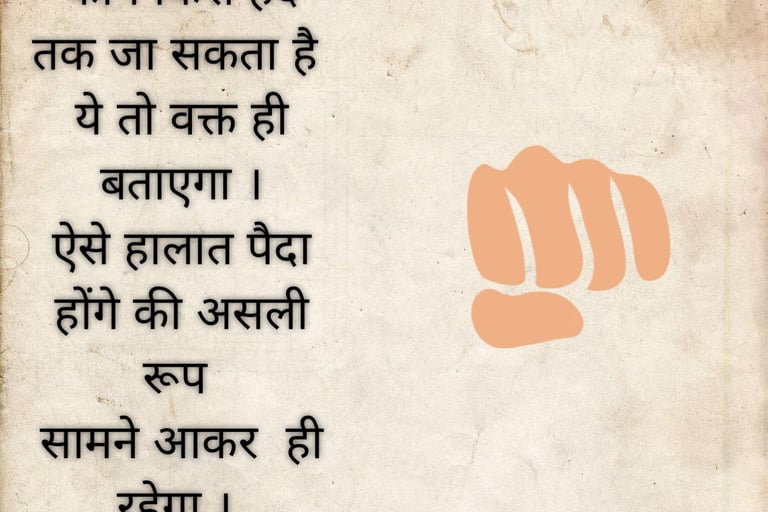 तक जा सकता है
ये तो वक्त ही
बताएगा ।
ऐसे हालात पैदा
होंगे की असली
रूप
सामने आकर ही
रहेगा ।